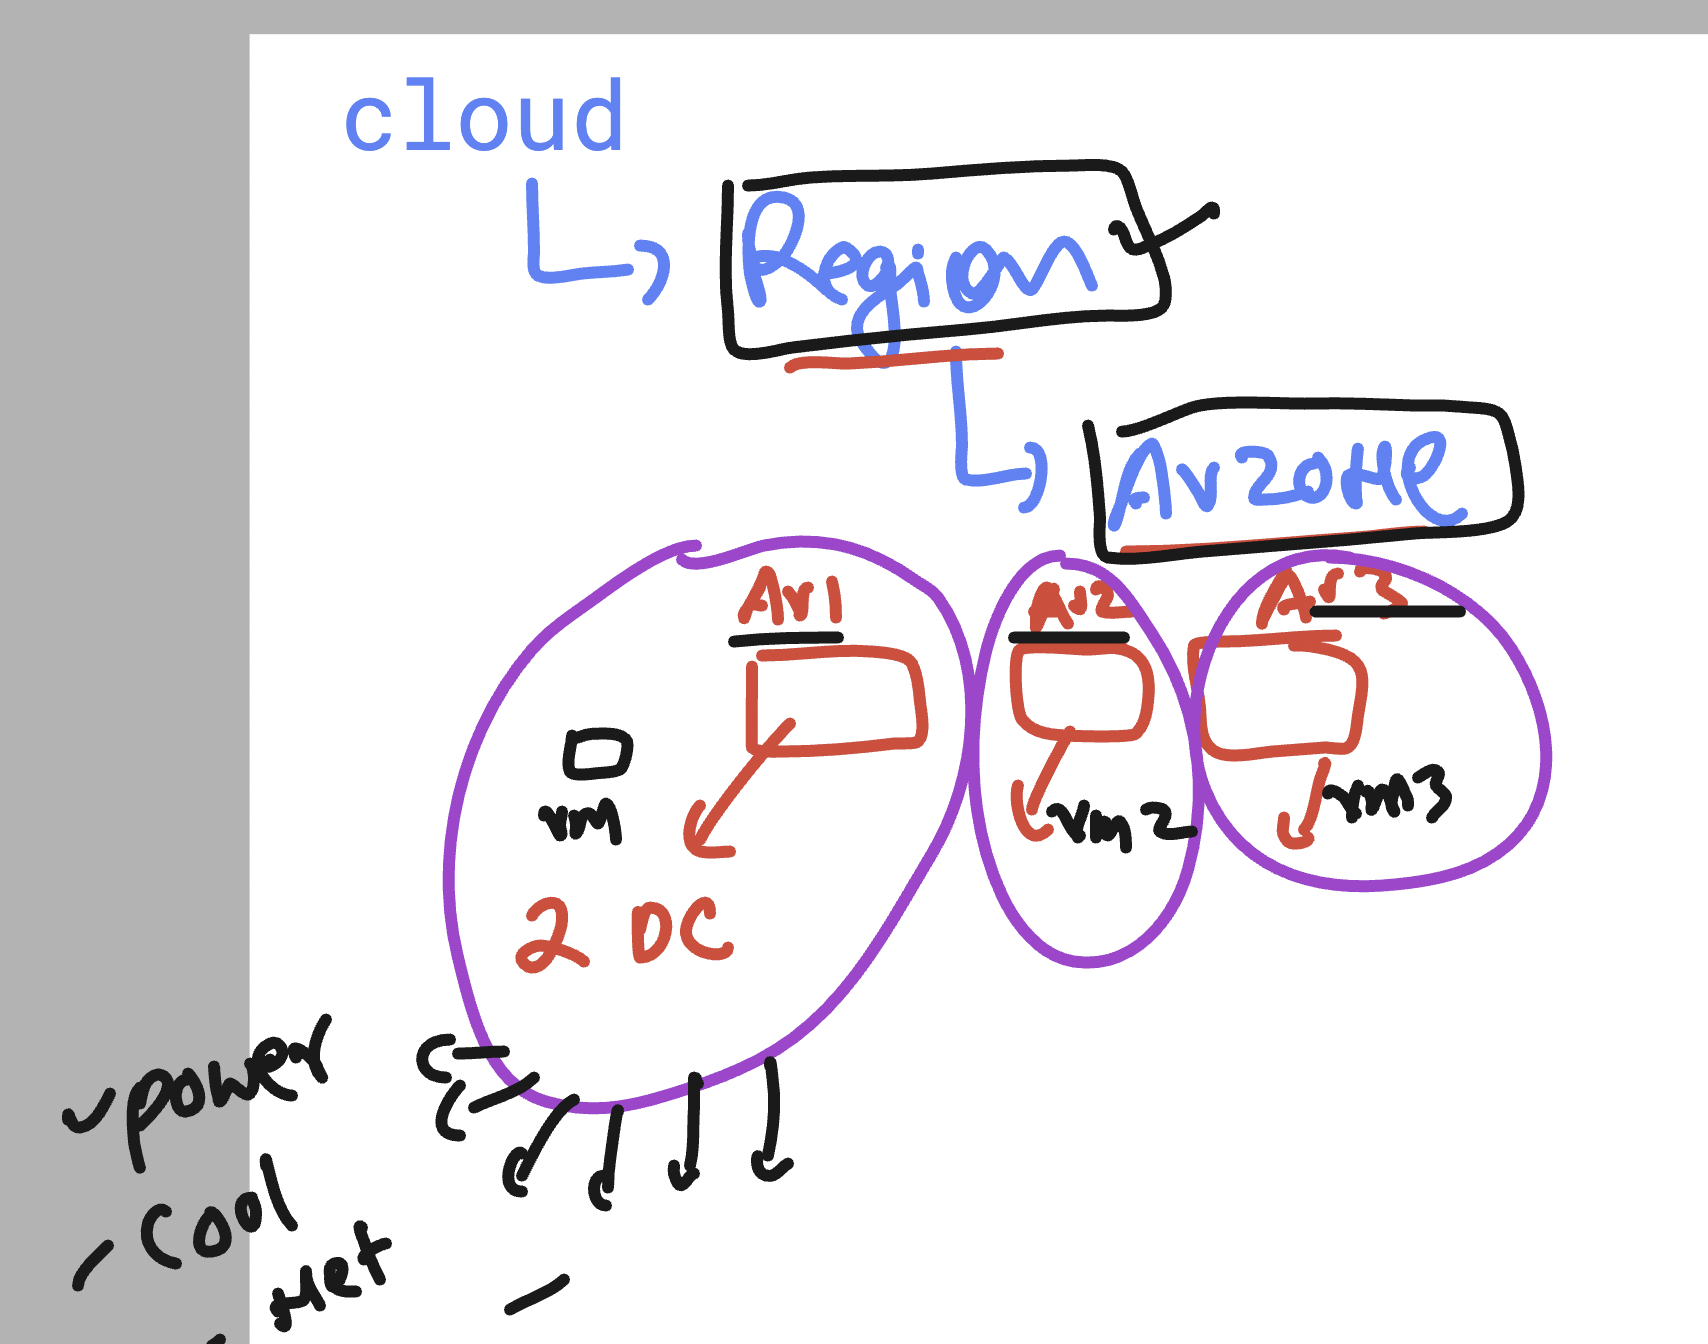 cloud
Region
Av zone
Av1 Av2 Av3
vm vm2 vm3
2 DC
power
Cool
Net